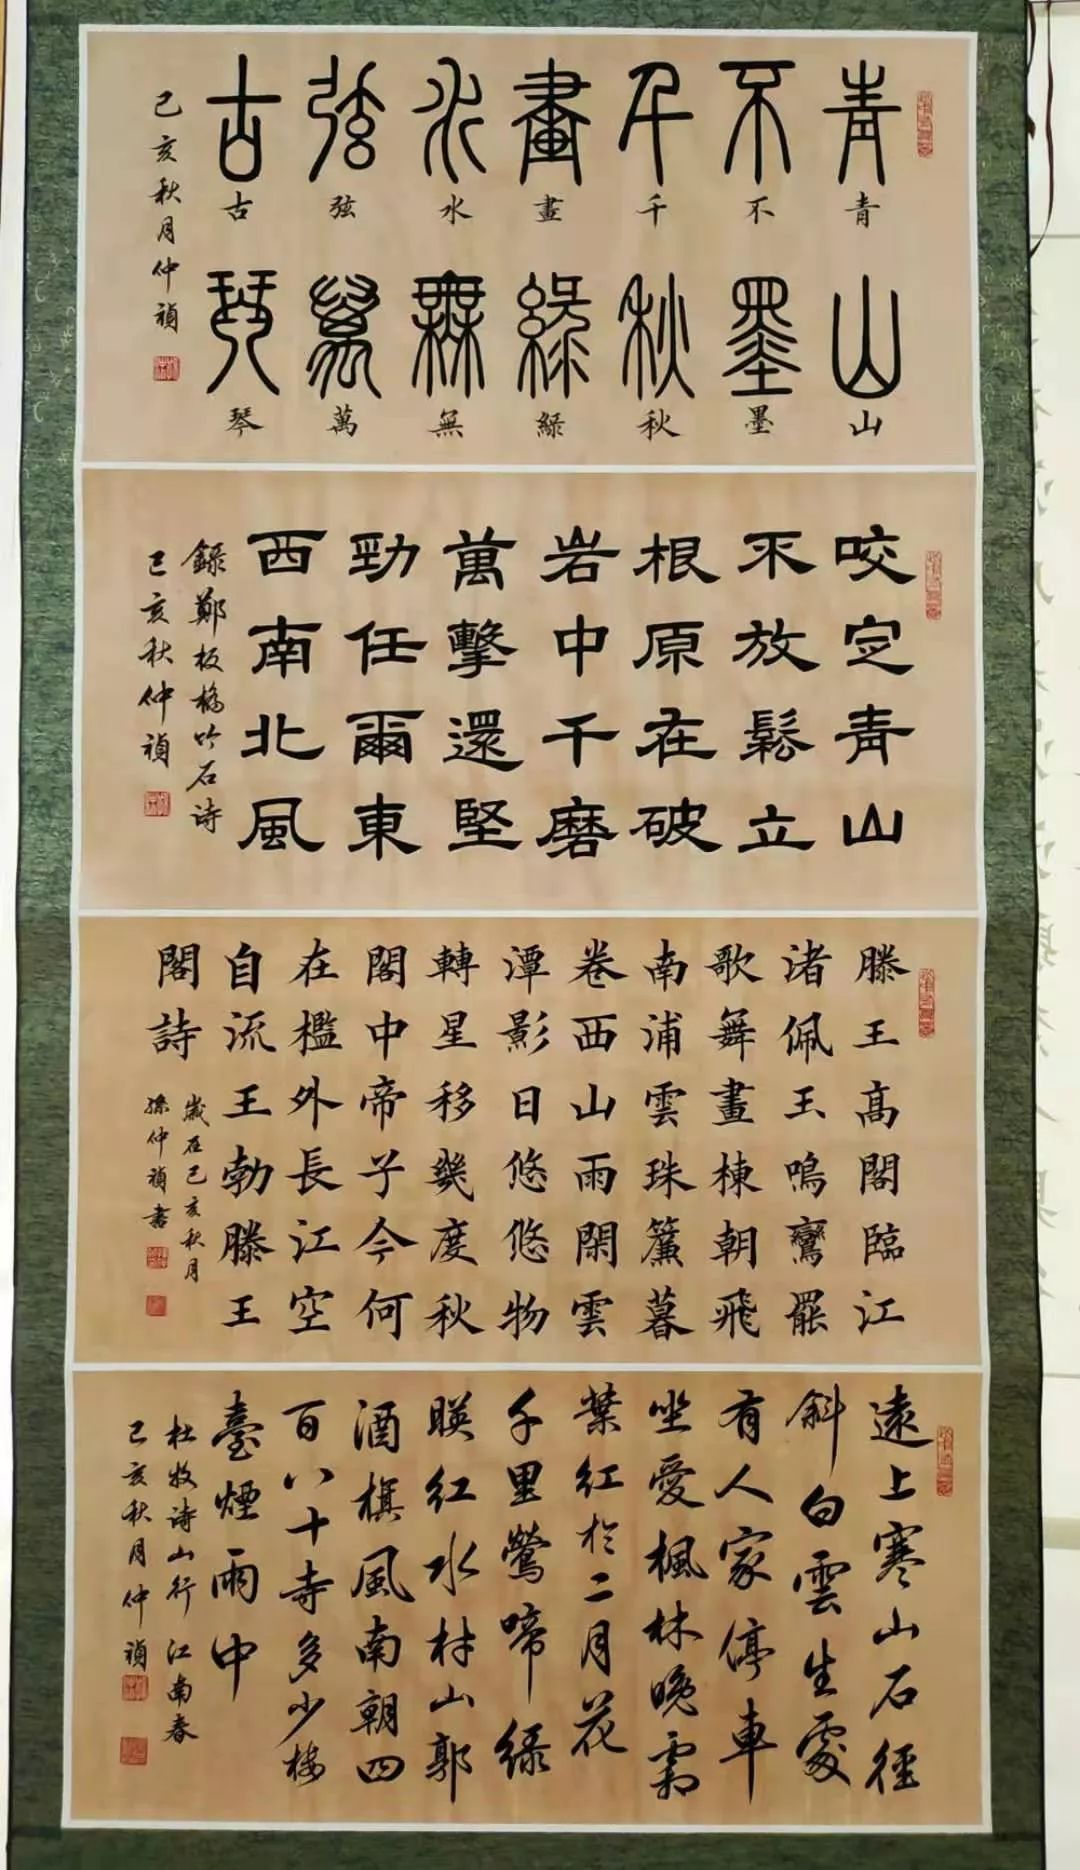 青山
不墨
千秋
畫綠
水無
弦萬
古琴
青
山
不
墨
千
秋
畫
綠
水
無
弦
萬
古
琴
己亥秋月仲禎
咬定青山
不放鬆立
根原在破
岩中千磨
萬擊還堅
勁任爾東
西南北風
錄鄭板橋竹石诗
己亥秋仲禎
滕王高閣臨江
渚佩玉鳴鸞罷
歌舞畫棟朝飛
南浦雲珠簾暮
卷西山雨閑雲
潭影日悠悠物
轉星移幾度秋
閣中帝子今何
在檻外長江空
自流王勃滕王
閣詩
歲在己亥秋月
孫仲禎書
遠上寒山石徑
斜白雲生處
有人家停車
坐愛楓林晚霜
葉紅於二月花
千里鶯啼綠
暎紅水村山郭
酒旗風南朝四
百八十寺多少樓
臺煙雨中
杜牧诗山行 江南春
己亥秋月仲禎